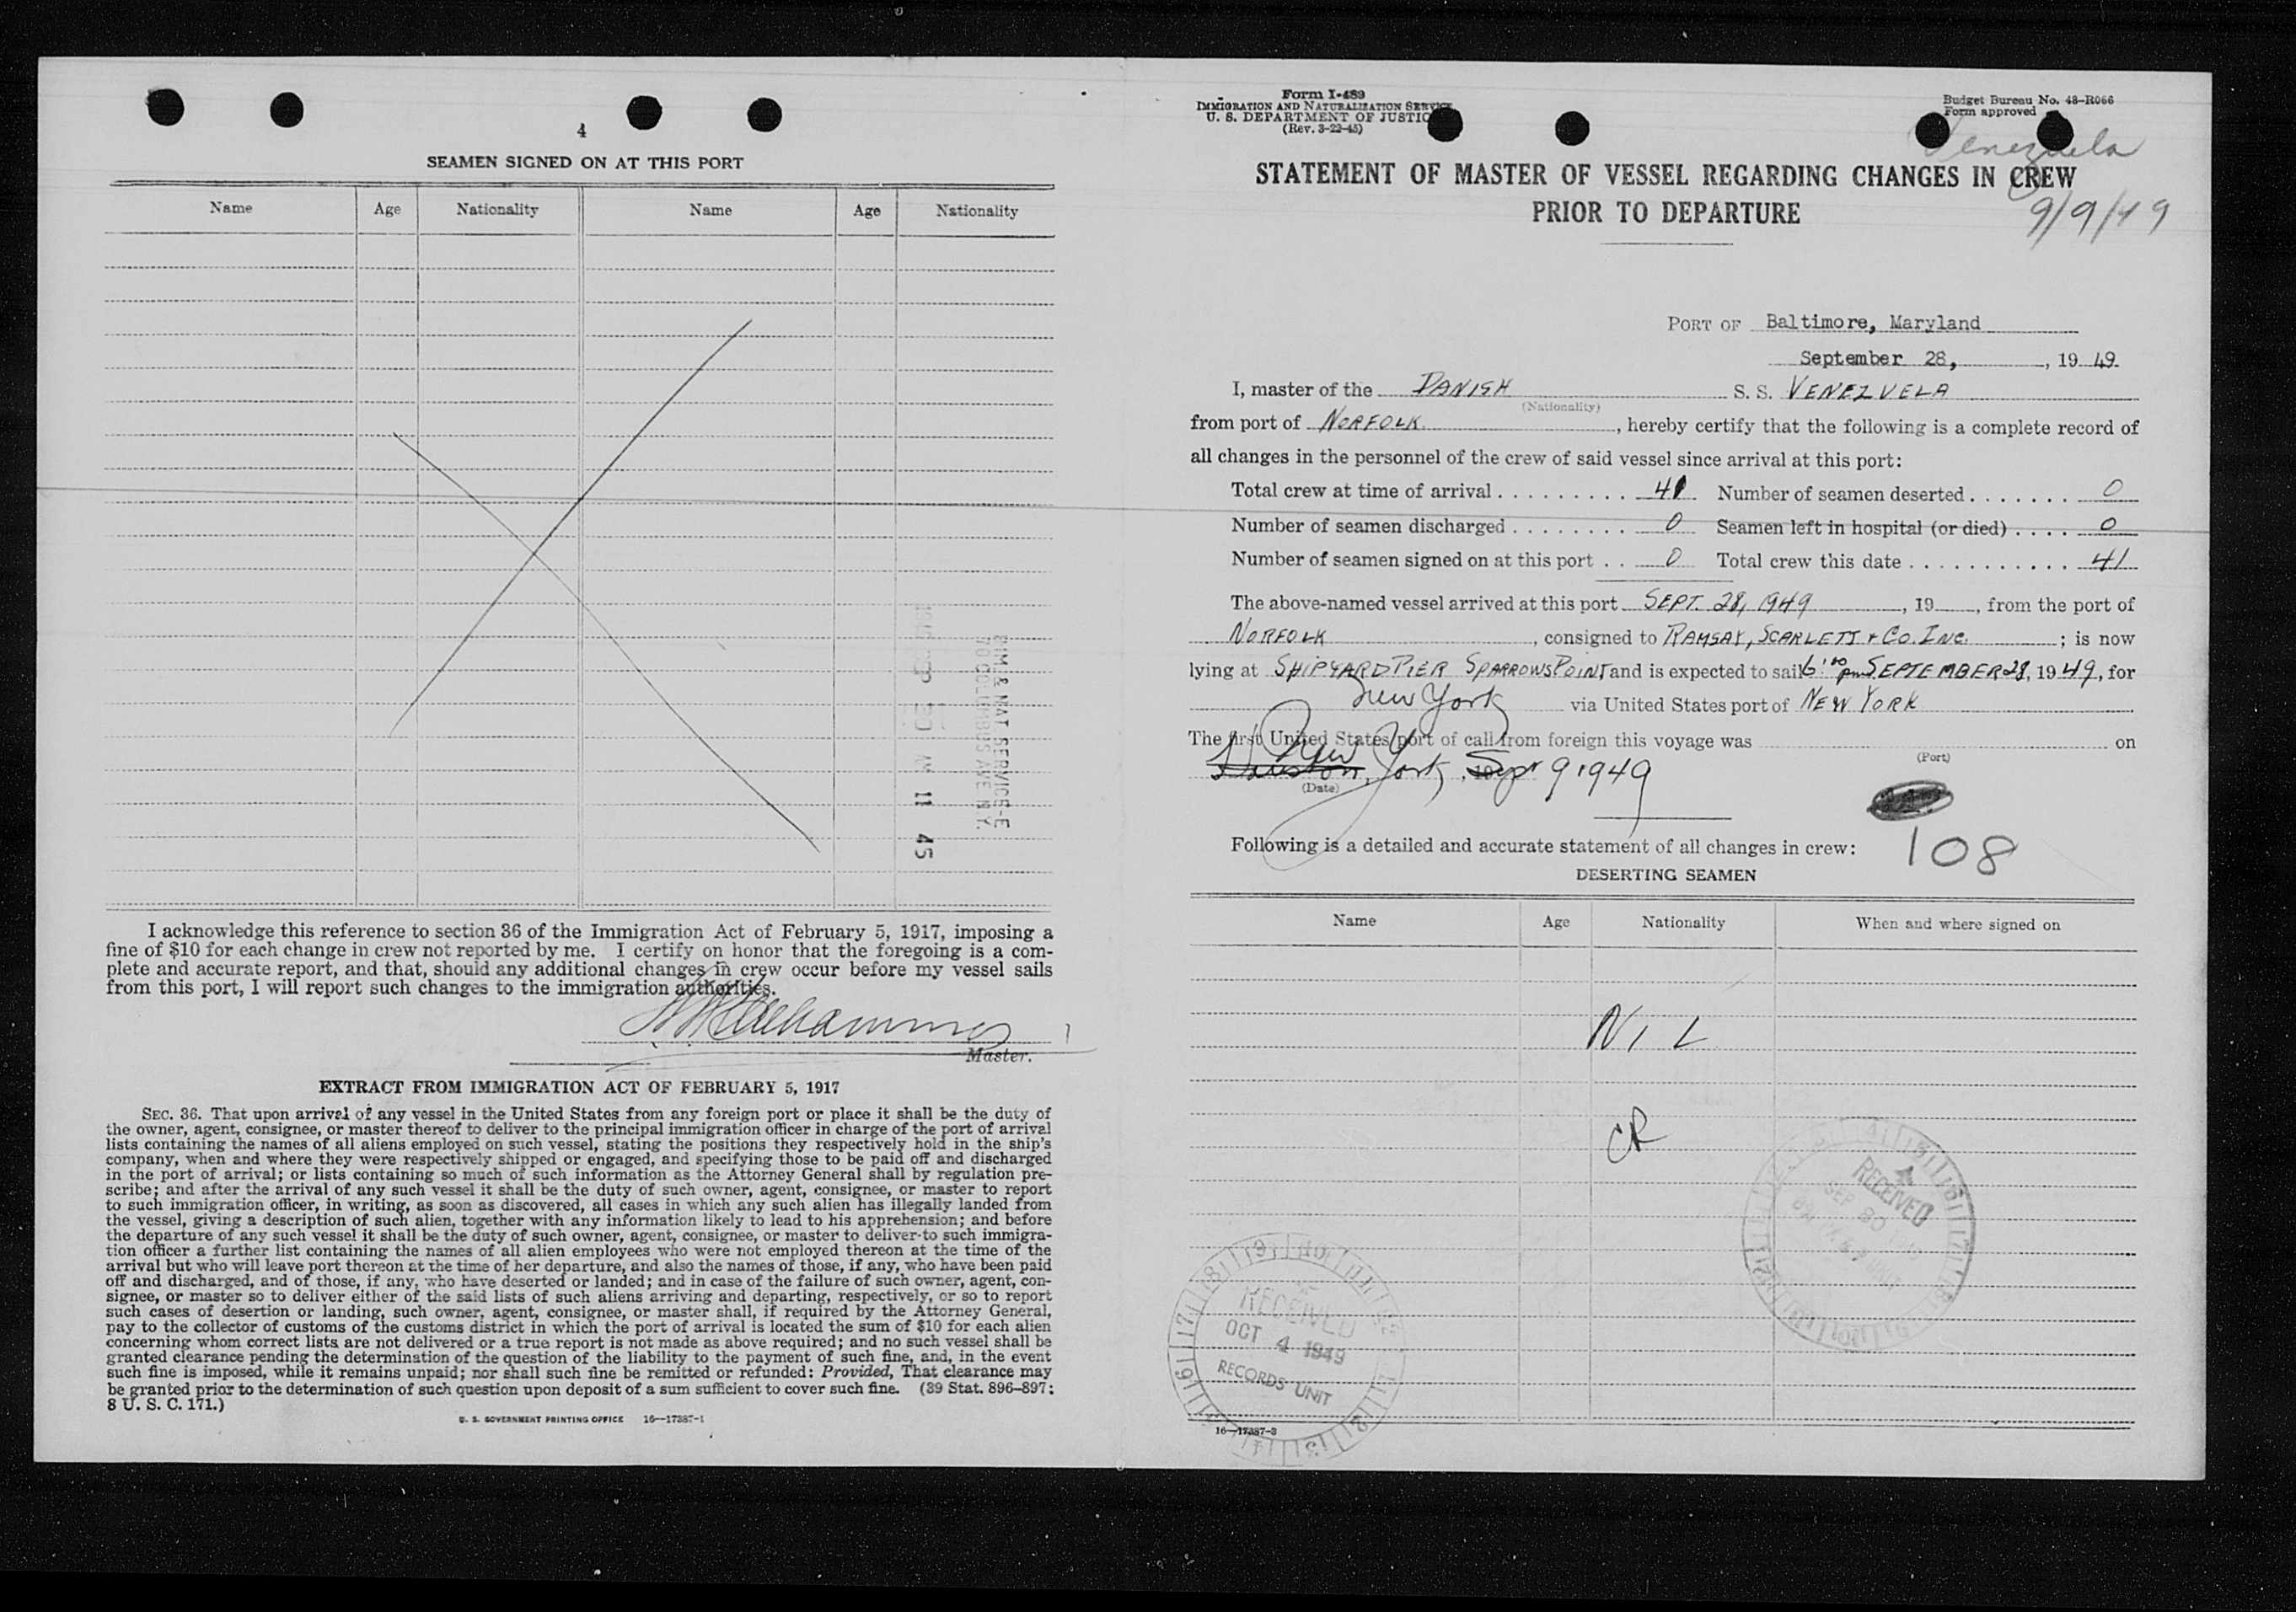 4
SEAMEN SIGNED ON AT THIS PORT
Name Age Nationality Name Age Nationality
IMM. & NAT. SERVICE-E
70 COLUMBUS AVE N.Y.
SEP 30 AM 11 45
I acknowledge this reference to section 36 of the Immigration Act of February 5, 1917, imposing a
fine of $10 for each change in crew not reported by me. I certify on honor that the foregoing is a com-
plete and accurate report, and that, should any additional changes in crew occur before my vessel sails
from this port, I will report such changes to the immigration authorities.
Master.
EXTRACT FROM IMMIGRATION ACT OF FEBRUARY 5, 1917
SEC. 36. That upon arrival of any vessel in the United States from any foreign port or place it shall be the duty of
the owner, agent, consignee, or master thereof to deliver to the principal immigration officer in charge of the port of arrival
lists containing the names of all aliens employed on such vessel, stating the positions they respectively hold in the ship's
company, when and where they were respectively shipped or engaged, and specifying those to be paid off and discharged
in the port of arrival; or lists containing so much of such information as the Attorney General shall by regulation pre-
scribe; and after the arrival of any such vessel it shall be the duty of such owner, agent, consignee, or master to report
to such immigration officer, in writing, as soon as discovered, all cases in which any such alien has illegally landed from
the vessel, giving a description of such alien, together with any information likely to lead to his apprehension; and before
the departure of any such vessel it shall be the duty of such owner, agent, consignee, or master to deliver to such immigra-
tion officer a further list containing the names of all alien employees who were not employed thereon at the time of the
arrival but who will leave port thereon at the time of her departure, and also the names of those, if any, who have been paid
off and discharged, and of those, if any, who have deserted or landed; and in case of the failure of such owner, agent, con-
signee, or master so to deliver either of the said lists of such aliens arriving and departing, respectively, or so to report
such cases of desertion or landing, such owner, agent, consignee, or master shall, if required by the Attorney General,
pay to the collector of customs of the customs district in which the port of arrival is located the sum of $10 for each alien
concerning whom correct lists are not delivered or a true report is not made as above required; and no such vessel shall be
granted clearance pending the determination of the question of the liability to the payment of such fine, and, in the event
such fine is imposed, while it remains unpaid; nor shall such fine be remitted or refunded: Provided, That clearance may
be granted prior to the determination of such question upon deposit of a sum sufficient to cover such fine. (39 Stat. 896-897;
8 U. S. C. 171.)
U. S. GOVERNMENT PRINTING OFFICE 16—17387-1
Form I-489
IMMIGRATION AND NATURALIZATION SERVICE
U. S. DEPARTMENT OF JUSTIC
(Rev. 3-22-45)
Budget Bureau No. 43-R066
Form approved
Venezuela
9/9/49
STATEMENT OF MASTER OF VESSEL REGARDING CHANGES IN CREW
PRIOR TO DEPARTURE
PORT OF Baltimore, Maryland
September 28, , 19 49.
I, master of the DANISH S. S. VENEZUELA
(Nationality)
from port of NORFOLK , hereby certify that the following is a complete record of
all changes in the personnel of the crew of said vessel since arrival at this port:
Total crew at time of arrival . . . . . . . . . 41 Number of seamen deserted . . . . . . . 0
Number of seamen discharged . . . . . . . . 0 Seamen left in hospital (or died) . . . . 0
Number of seamen signed on at this port . . 0 Total crew this date . . . . . . . . . . . 41
The above-named vessel arrived at this port SEPT. 28, 1949 , 19 , from the port of
NORFOLK , consigned to RAMSAY, SCARLETT & CO. INC. ; is now
lying at SHIPYARD PIER SPARROWS POINT and is expected to sail 6:00 pm SEPTEMBER 28, 1949, for
New York via United States port of NEW YORK
The first United States port of call from foreign this voyage was on
(Port)
Houston, New York, Sept 9 1949
(Date)
108
Following is a detailed and accurate statement of all changes in crew:
DESERTING SEAMEN
Name Age Nationality When and where signed on
NIL
CR
RECEIVED
SEP 30
RECEIVED
OCT 4 1949
RECORDS UNIT
16—17387-3